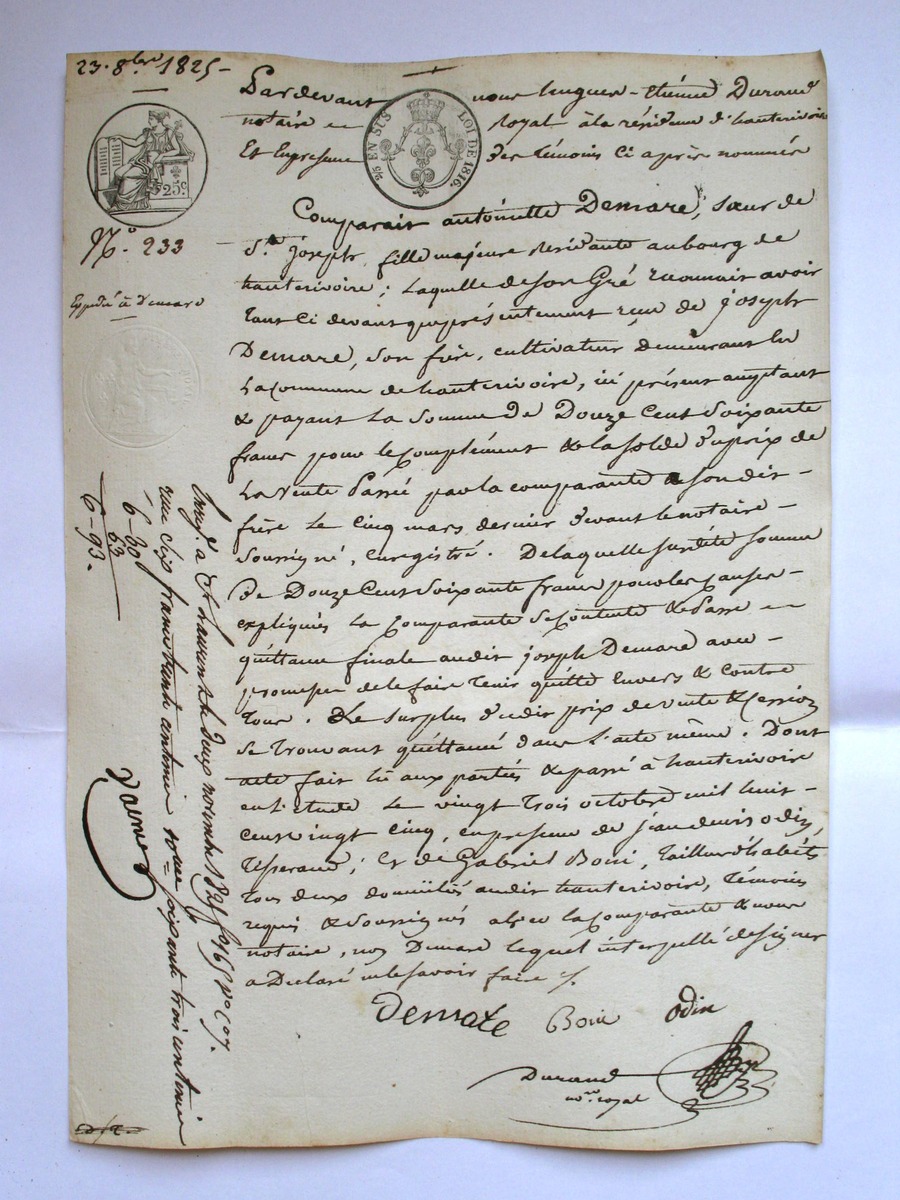 23. 8bre. 1825 -
Pardevant nous hugues - étienne Durand
notaire royal à la résidence d'hauterivoire
Et En presence des témoins Ci après nommés
2/5 EN SUS LOI DE 1816.
25c.
N.o 233
Expédié à Demare
Comparait antoinette Demare, sœur de
St. joseph, fille majeure residante au bourg de
hauterivoire ; Laquelle de son Gré reconnait avoir
tant Ci devant que présentement reçu de joseph
Demare, son frère, cultivateur demeurant en
La Commune de hauterivoire, ici présent acceptant
& payant La somme de Douze Cent Soixante
francs pour le complément & la solde du prix de
La Vente Passée par la comparante à son dit -
frère Le Cinq mars dernier devant le notaire -
soussigné, Enregistré. De laquelle susdite somme
De Douze Cent Soixante francs pour les causes -
expliquées La Comparante Se Contente & Passe
quittance finale audit joseph Demare avec -
promesse de le faire tenir quitte Envers & Contre
tous. Le surplus dudit prix de vente & Cession
se trouvant quittancé dans L'acte même. Dont
acte fait lû aux parties & passé à hauterivoire
en L'étude Le vingt trois octobre mil huit -
cent vingt cinq, en presence de jean denis odin,
tisserand, Et de Gabriel Boni, tailleur d'habits
tous deux domiciliés audit hauterivoire, témoins
requis & soussignés avec la comparante & nous
notaire, non Demare lequel interpellé de signer
a Déclaré ne le savoir faire ./.
Demare Boni Odin
Durand
nre. royal
Enregé. à St Laurent le deux novembre 1825 fo 165 vo C 7.
reçu six francs trente centimes 10me soixante trois centimes
6-30
63
6-93.